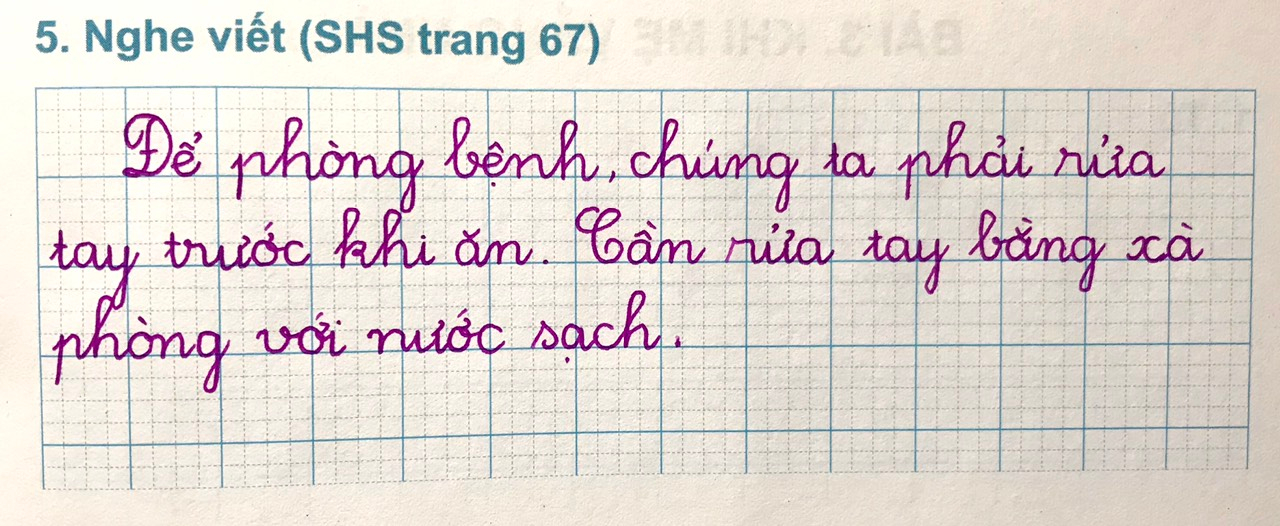 5. Nghe viết (SHS trang 67)
Để phòng bệnh, chúng ta phải rửa
tay trước khi ăn. Cần rửa tay bằng xà
phòng với nước sạch.